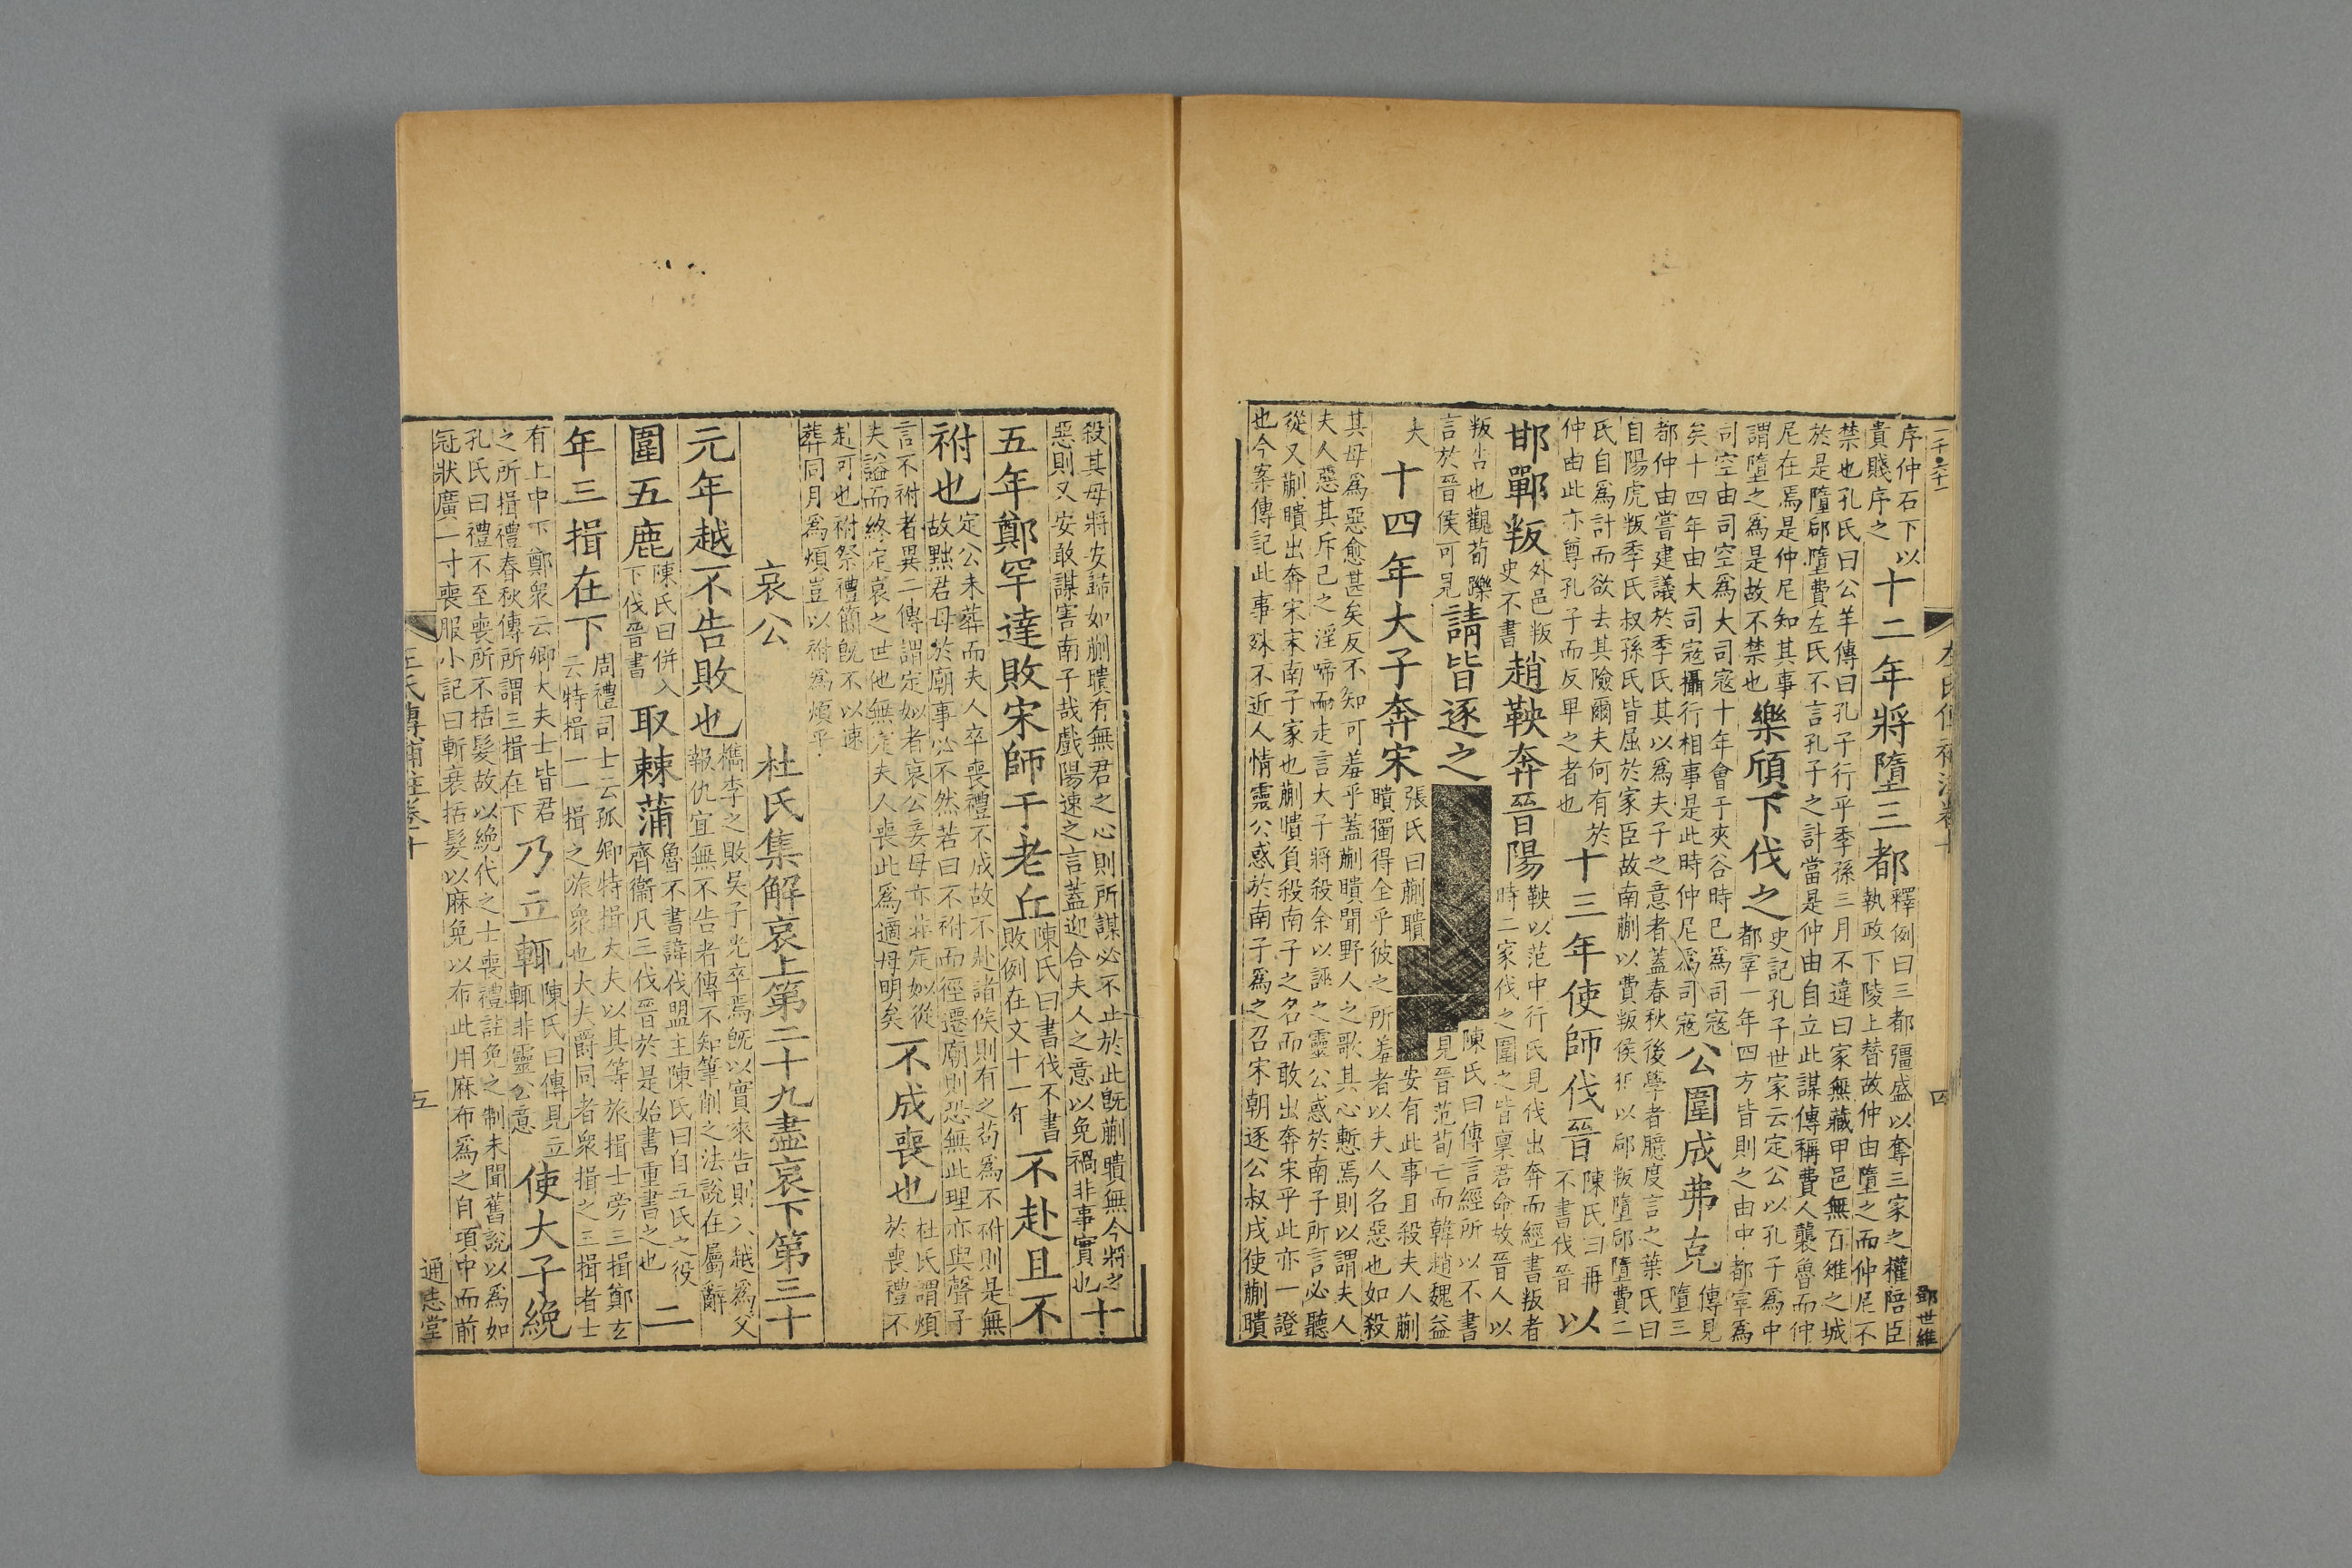 一千六十一 左氏傳補注卷十 四 鄧世維
序仲石下以貴賤序之十二年將墮三都釋例曰三都彊盛以奪三家之權陪臣執政下陵上替故仲由墮之而仲尼不
禁也孔氏曰公羊傳曰孔子行乎季孫三月不違曰家無藏甲邑無百雉之城
於是隳郈隳費左氏不言孔子之計當是仲由自立此謀傳稱費人襲魯而仲
尼在焉是仲尼知其事謂墮之爲是故不禁也樂頎下伐之史記孔子世家云定公以孔子爲中都宰一年四方皆則之由中都宰爲
司空由司空爲大司寇十年會于夾谷時已爲司寇矣十四年由大司寇攝行相事是此時仲尼爲司寇公圍成弗克傳見墮三
都仲由嘗建議於季氏其以爲夫子之意者蓋春秋後學者臆度言之葉氏曰
自陽虎叛季氏叔孫氏皆屈於家臣故南蒯以費叛侯犯以郈叛墮郈墮費二
氏自爲計而欲去其險爾夫何有於仲由此亦尊孔子而反卑之者也十三年使師伐晉陳氏曰再不書伐晉以
邯鄲叛外邑叛史不書趙鞅奔晉陽鞅以范中行氏見伐出奔而經書叛者時二家伐之圍之皆稟君命故晉人以
叛告也觀荀躒言於晉侯可見請皆逐之陳氏曰傳言經所以不書見晉范荀亡而韓趙魏益
夫十四年大子奔宋張氏曰蒯聵安有此事且殺夫人蒯聵獨得全乎彼之所羞者以夫人名惡也如殺
其母爲惡愈甚矣反不知可羞乎蓋蒯聵聞野人之歌其心慙焉則以謂夫人
夫人惡其斥己之淫啼而走言大子將殺余以誣之靈公惑於南子所言必聽
從又蒯聵出奔宋宋南子家也蒯聵負殺南子之名而敢出奔宋乎此亦一證
也今案傳記此事殊不近人情靈公惑於南子爲之召宋朝逐公叔戌使蒯聵
殺其母將安歸如蒯聵有無君之心則所謀必不止於此旣蒯聵無今將之惡則又安敢謀害南子哉戲陽速之言蓋迎合夫人之意以免禍非事實也十
五年鄭罕達敗宋師于老丘陳氏曰書伐不書敗例在文十一年不赴且不
祔也定公未葬而夫人卒喪禮不成故不赴諸侯則有之苟爲不祔則是無故黜君母於廟事必不然若曰不祔而徑遷廟則恐無此理亦與聲子
言不祔者異二傳謂定姒者哀公妾母亦非定姒從夫謚而終定哀之世他無定夫人喪此爲適母明矣不成喪也杜氏謂煩於喪禮不
赴可也祔祭禮簡旣不以速葬同月爲煩豈以祔爲煩乎
哀公 杜氏集解哀上第二十九盡哀下第三十
元年越不告敗也檇李之敗吳子光卒焉旣以實來告則入越爲父報仇宜無不告者傳不知筆削之法說在屬辭
圍五鹿陳氏曰併入下伐晉書取棘蒲魯不書諱伐盟主陳氏曰自五氏之役齊衞凡三伐晉於是始書重書之也二
年三揖在下周禮司士云孤卿特揖大夫以其等旅揖士旁三揖鄭玄云特揖一一揖之旅衆也大夫爵同者衆揖之三揖者士
有上中下鄭衆云卿大夫士皆君之所揖禮春秋傳所謂三揖在下乃立輒陳氏曰傳見立輒非靈公意使大子絻
孔氏曰禮不至喪所不括髮故以絻代之士喪禮註免之制未聞舊說以爲如
冠狀廣一寸喪服小記曰斬衰括髮以麻免以布此用麻布爲之自項中而前
左氏傳補注卷十 五 通志堂